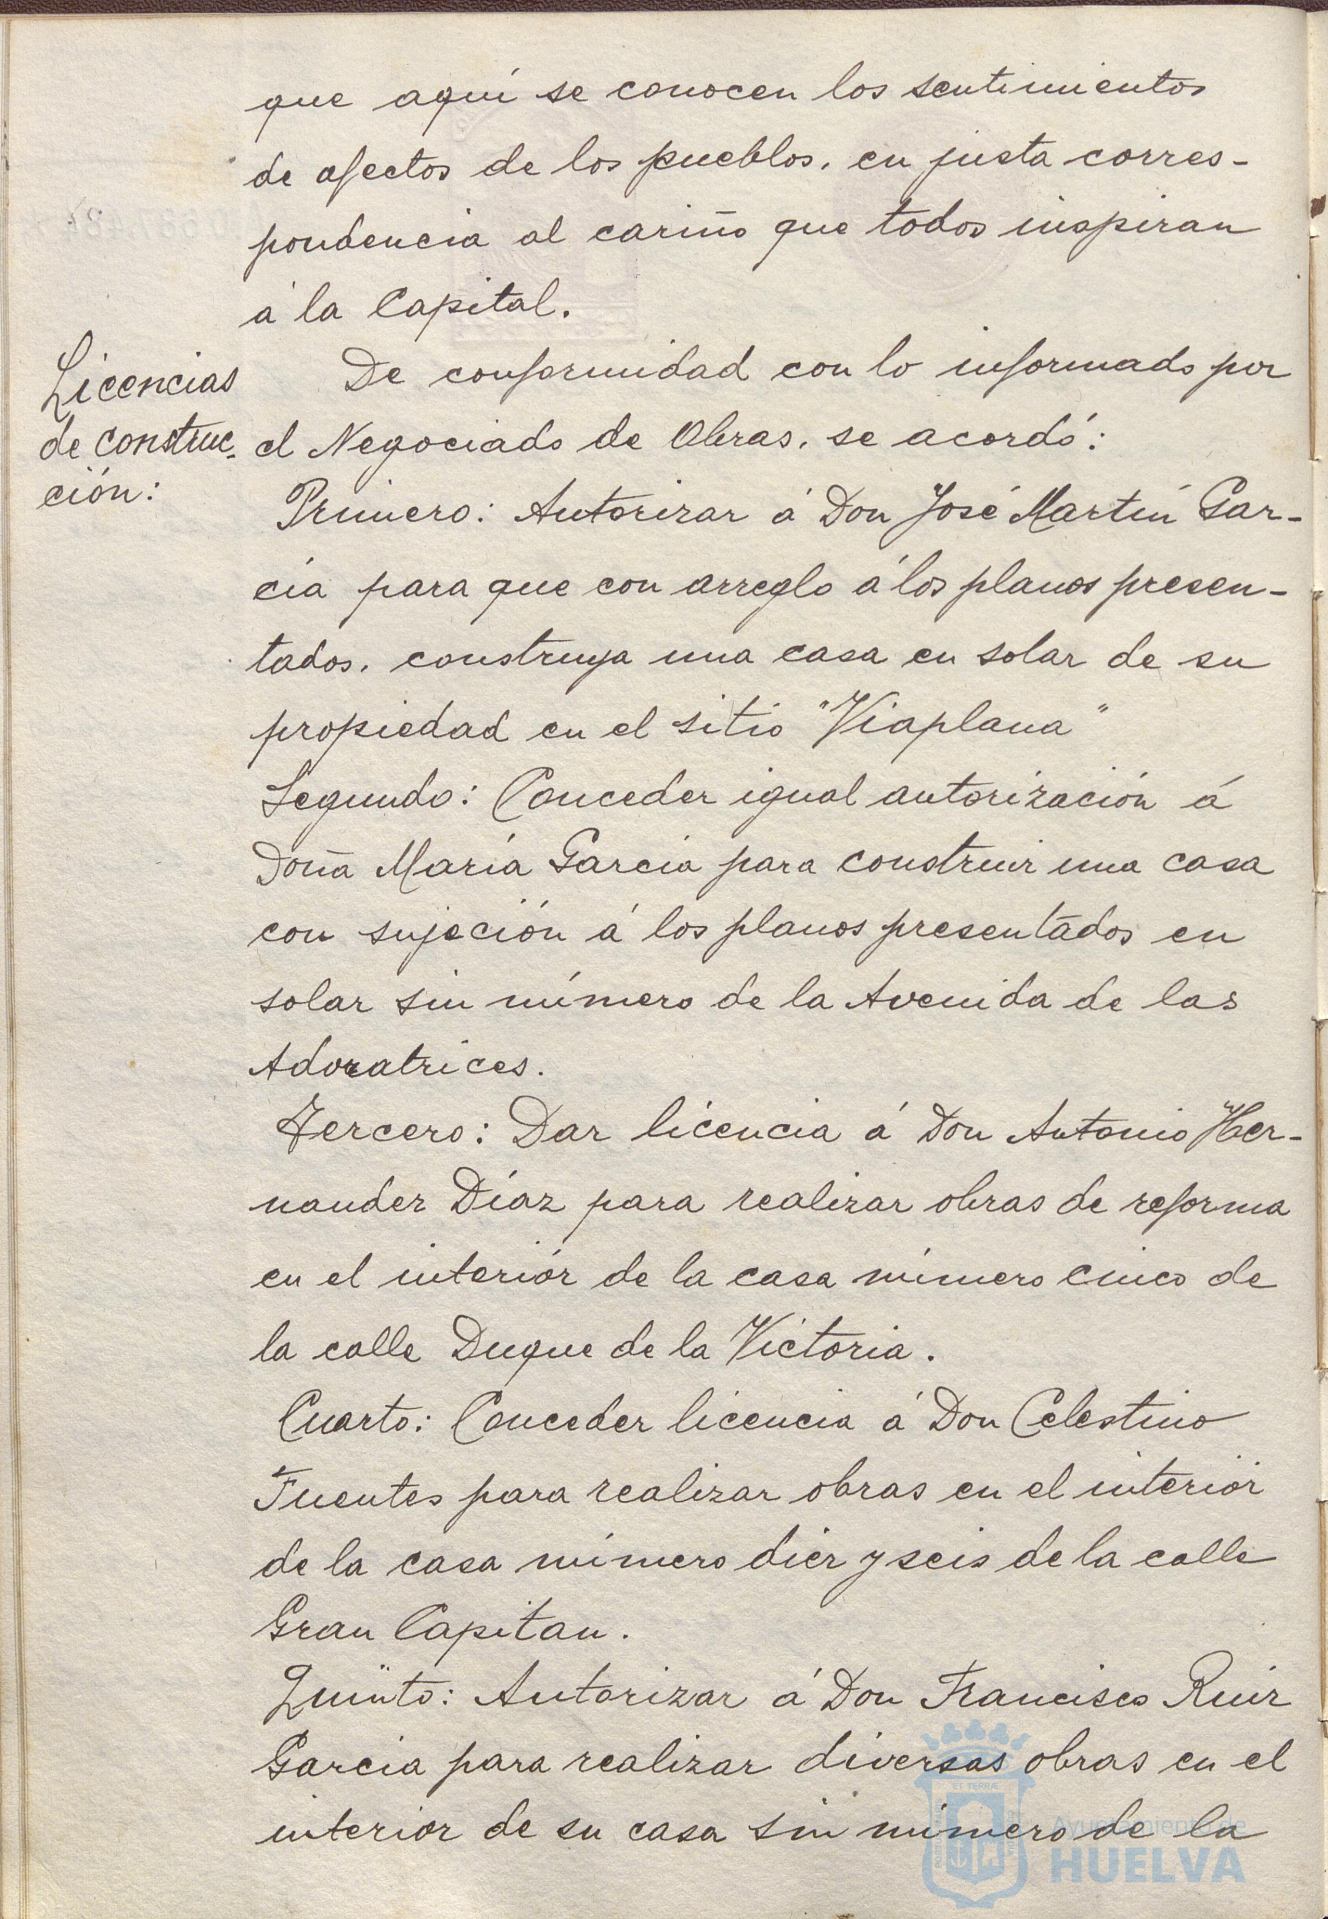 que aquí se conocen los sentimientos
de afectos de los pueblos, en justa corres-
pondencia al cariño que todos inspiran
á la Capital.
Licencias
de construc-
ción:
De conformidad con lo informado por
el Negociado de Obras, se acordó:
Primero: Autorizar á Don José Martín Gar-
cía para que con arreglo á los planos presen-
tados, construya una casa en solar de su
propiedad en el sitio "Viaplana"
Segundo: Conceder igual autorización á
Doña María García para construir una casa
con sujeción á los planos presentados en
solar sin número de la Avenida de las
Adoratrices.
Tercero: Dar licencia á Don Antonio Her-
nandez Díaz para realizar obras de reforma
en el interior de la casa número cinco de
la calle Duque de la Victoria.
Cuarto: Conceder licencia á Don Celestino
Fuentes para realizar obras en el interior
de la casa número diez y seis de la calle
Gran Capitan.
Quinto: Autorizar á Don Francisco Ruiz
Garcia para realizar diversas obras en el
interior de su casa sin número de la
Ayuntamiento de
HUELVA